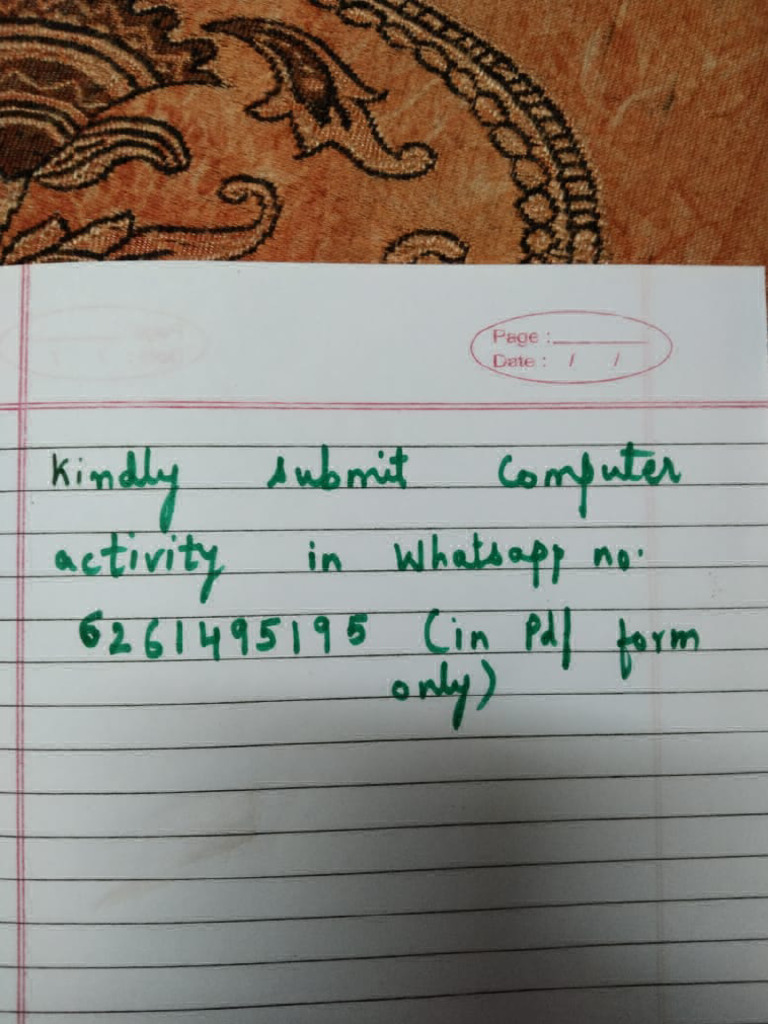 Page :
Date : / /
Kindly submit Computer
activity in Whatsapp no.
6261495195 (in Pdf form
only)